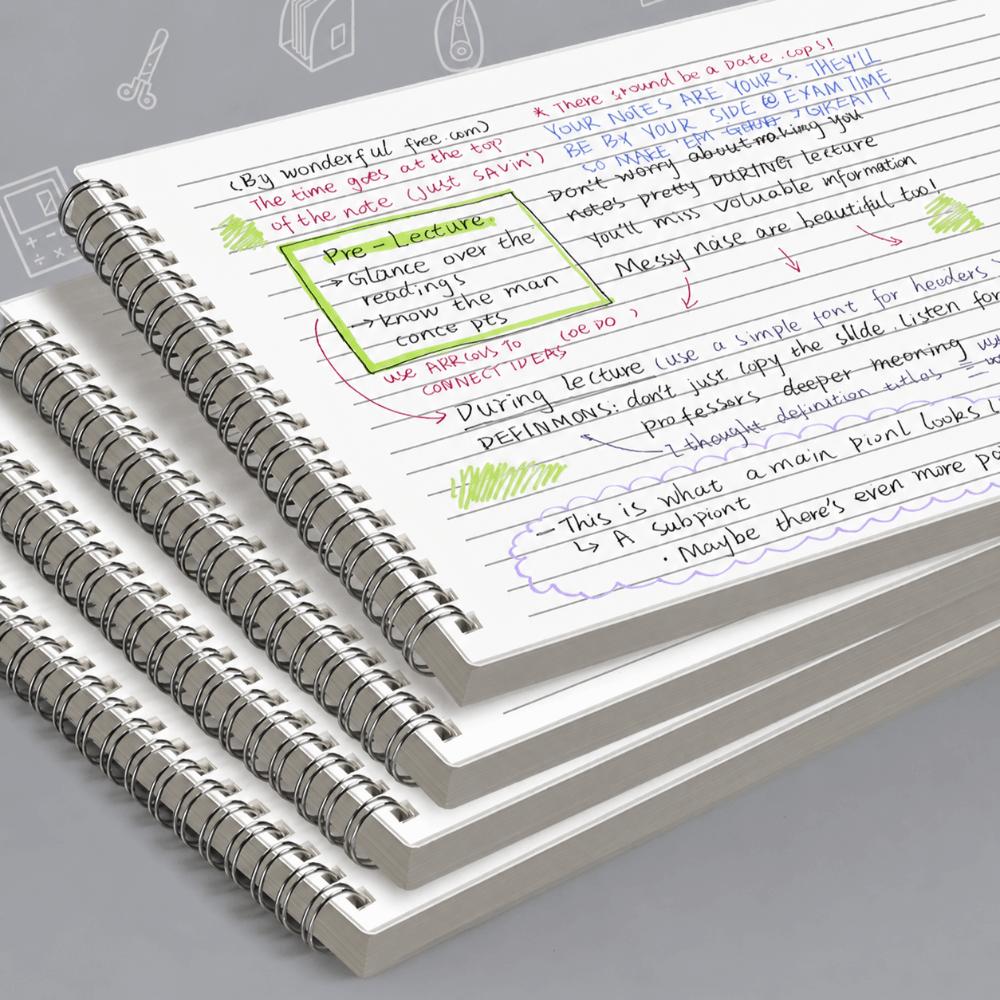 (By wonderful free.com)
The time goes at the top
of the note (Just SAVin')
* There sround be a Date .cops!
YOUR NOTES ARE YOURS. THEY'LL
BE BY YOUR SIDE @ EXAM TIME
SO MAKE 'EM GREAT!
Don't worry about making you
notes pretty DURING lecture
You'll miss valuable information
Messy nase are beautiful too!
Pre - Lecture
→ Glance over the
readings
→ know the man
conce pts
use ARROWS TO (OE DO )
CONNECT IDEAS
During lecture (use a simple font for heeders
DEFINMONS: don't just copy the slide. Listen for
professors deeper meoning
thought definition titles
– This is what a main pionl looks
↳ A subpiont
• Maybe there's even more